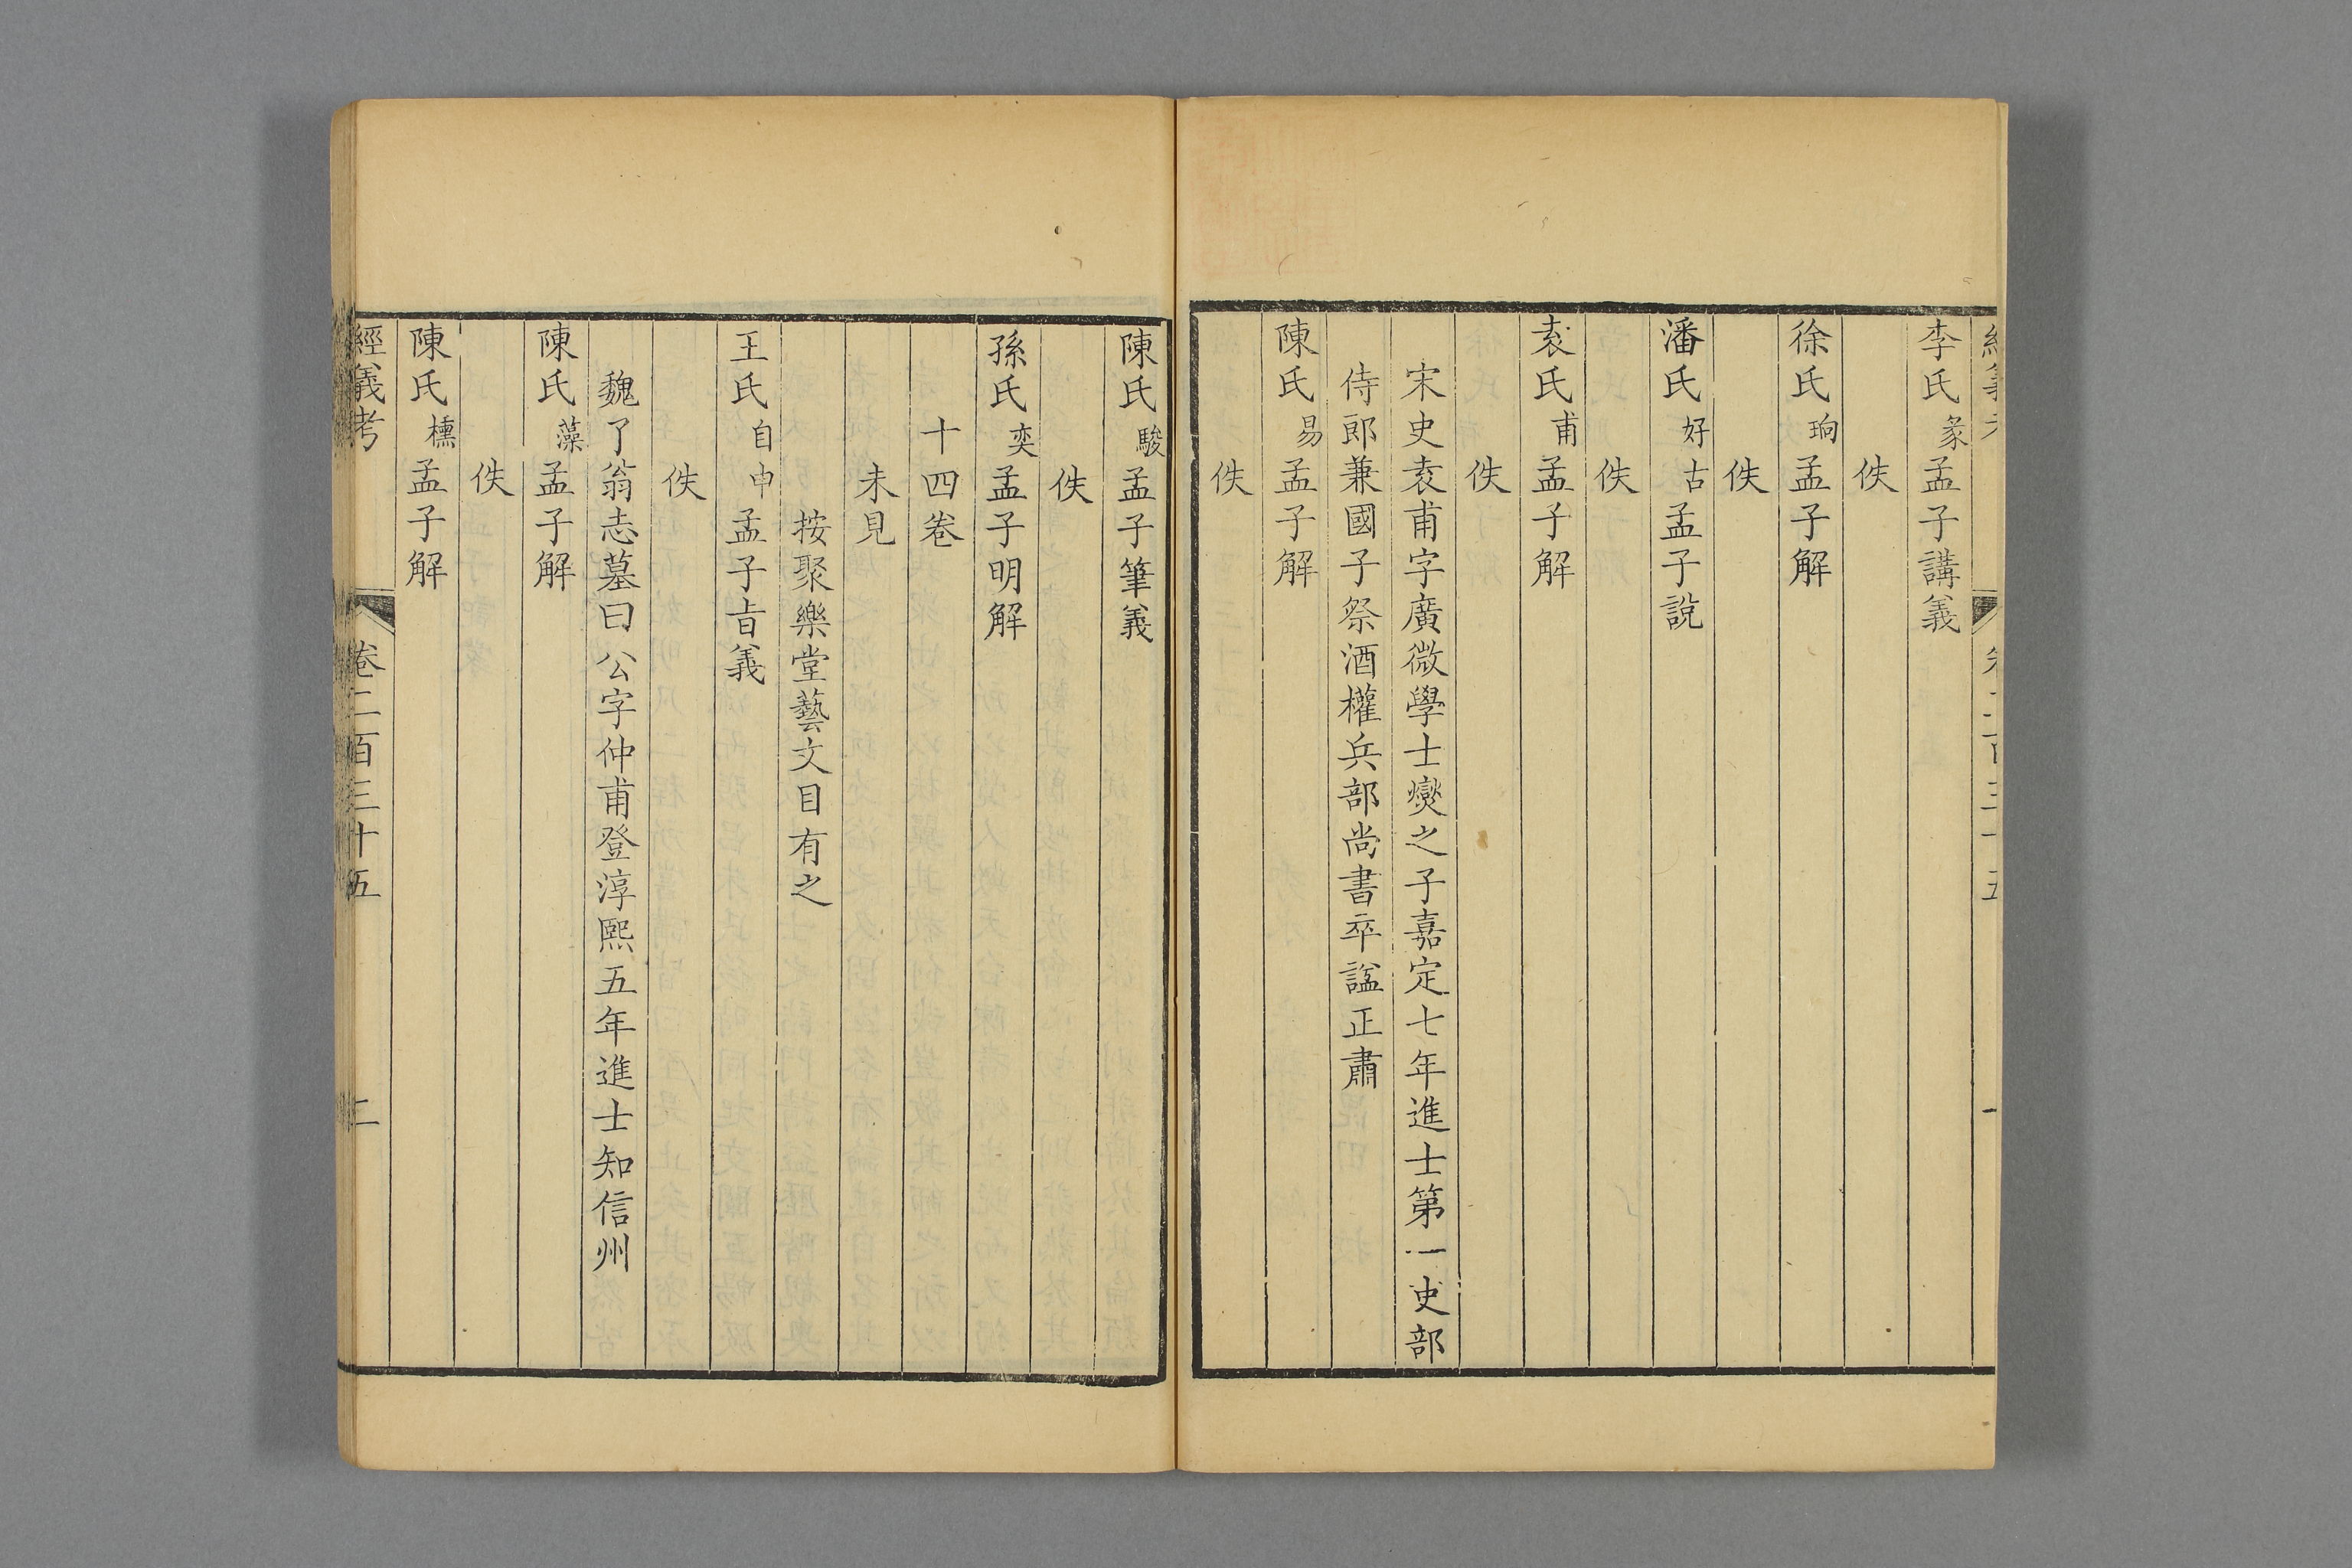 李氏彖孟子講義
佚
徐氏珦孟子解
佚
潘氏好古孟子說
佚
袁氏甫孟子解
佚
宋史袁甫字廣微學士燮之子嘉定七年進士第一吏部
侍郎兼國子祭酒權兵部尚書卒諡正肅
陳氏易孟子解
佚
陳氏駿孟子筆義
佚
孫氏奕孟子明解
十四卷
未見
按聚樂堂藝文目有之
王氏自申孟子旨義
佚
魏了翁志墓曰公字仲甫登淳熙五年進士知信州
陳氏藻孟子解
佚
陳氏櫄孟子解
經義考 卷二百三十五 二